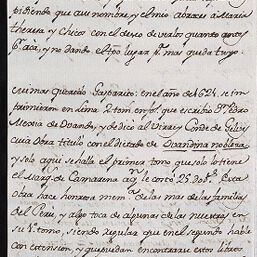 pidiendo que a su nombre, y el mio abraces a Maria
theresa y Chico con el deseo de verlos quanto antes
p.r aca, y no dando el tpo lugar p.a mas queda tuyo.
mi mas querido Gasparito: en el año de 1621. se im
primieron en Lima 2 tom en fol. que escribio D.n Pedro
Mexia de Ovando, y dedicó al Virrey Conde de Gelves
cuia Obra tituló con el dictado de Ovandina nobleria,
y solo aqui se halla el primer tomo que solo lo tiene
el Marq.s de Camarena aq.n le costó 25. dob.s esta
Obra hace honrosa mem.a de las mas de las familias
del Perú, y algo toca de algunas de las nuestras en
su 1. tomo, siendo regular que en el segundo hable
con extensión, y que puedan encontrarse estos libros